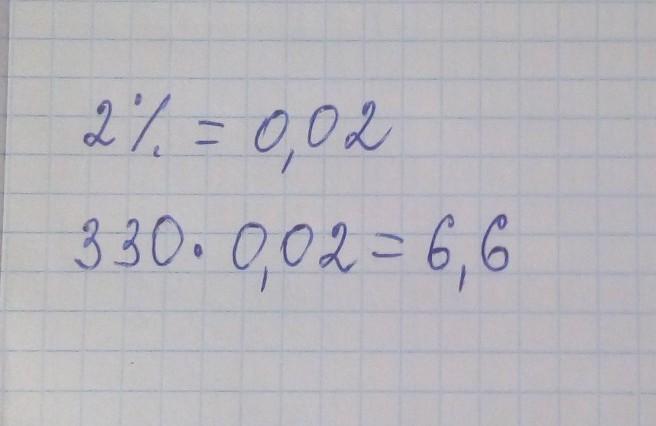 2% = 0,02
330 · 0,02 = 6,6